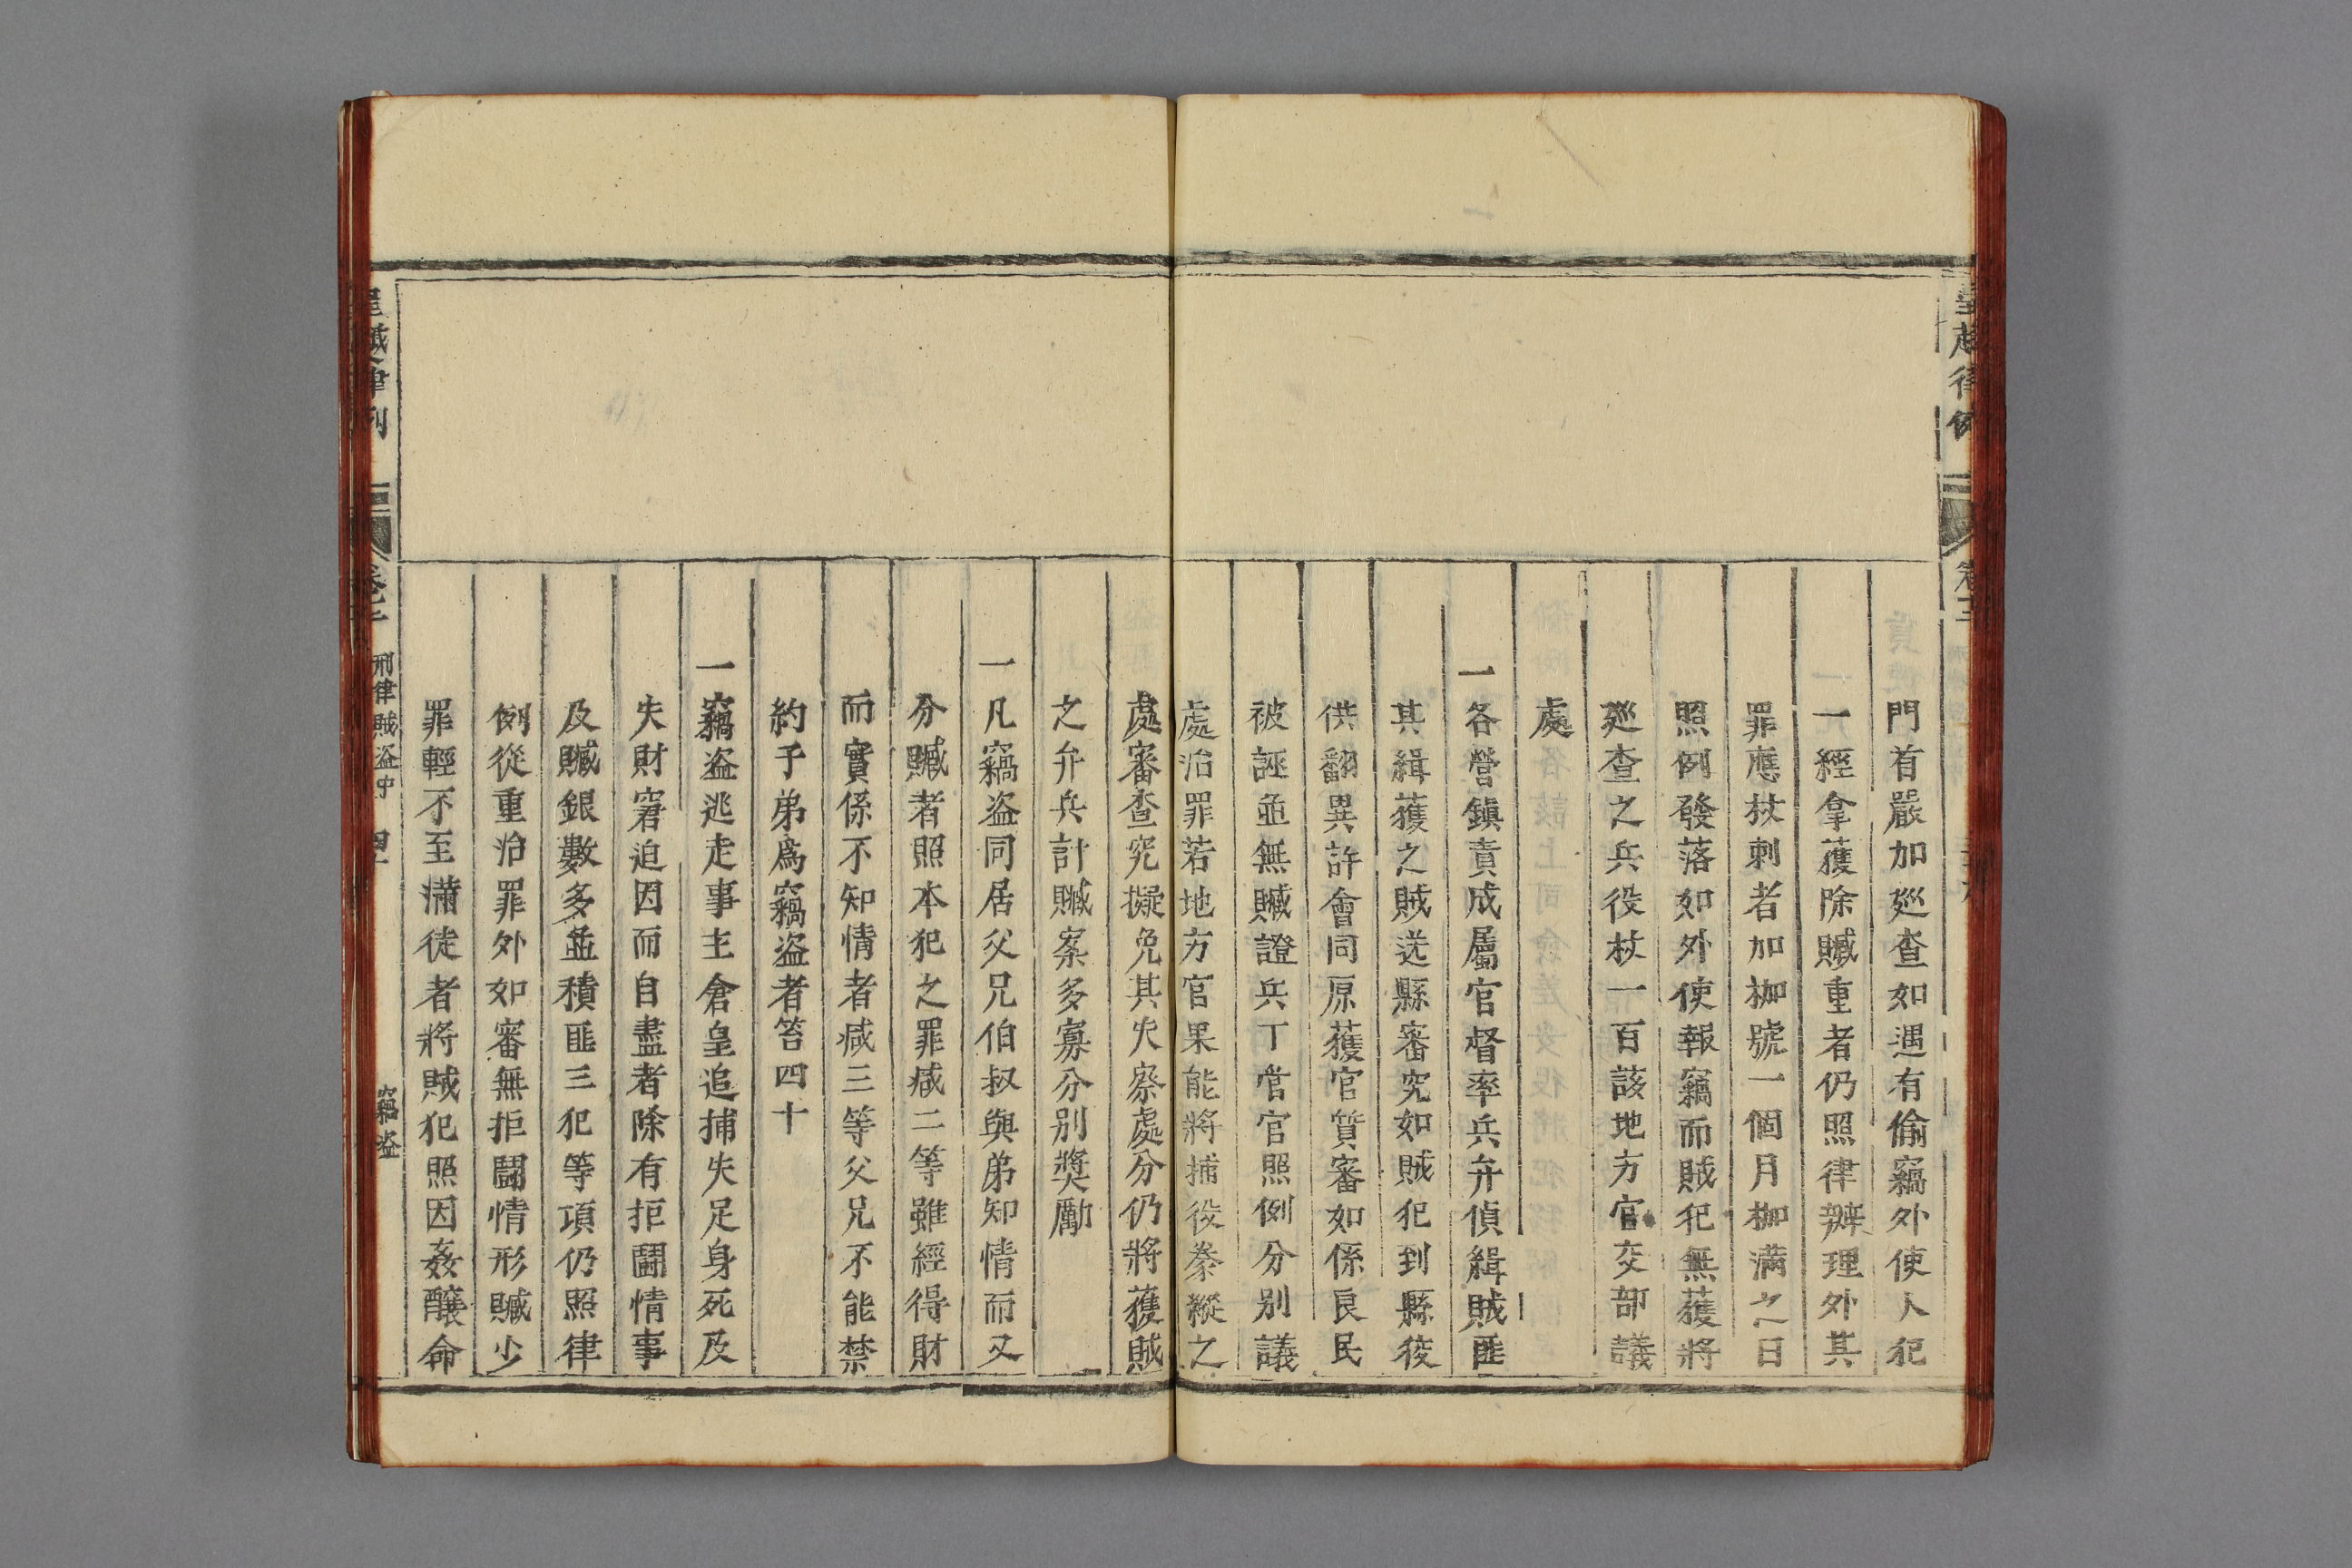 門首嚴加廵查如遇有偷竊外使人犯
一經拿獲除贓重者仍照律辦理外其
罪應杖刺者加枷號一個月枷滿之日
照例發落如外使報竊而賊犯無獲將
廵查之兵役杖一百該地方官交部議
處
一各營鎮責成屬官督率兵弁偵緝賊匪
其緝獲之賊送縣審究如賊犯到縣後
供翻異許會同原獲官質審如係良民
被誣並無贓證兵丁營官照例分別議
處治罪若地方官果能將捕役豢縱之
處審查究擬免其失察處分仍將獲賊
之弁兵計贓案多寡分別獎勵
一凡竊盜同居父兄伯叔與弟知情而又
分贓者照本犯之罪减二等雖經得財
而實係不知情者减三等父兄不能禁
約子弟爲竊盜者笞四十
一竊盜逃走事主倉皇追捕失足身死及
失財窘迫因而自盡者除有拒鬪情事
及贓銀數多並積匪三犯等項仍照律
例從重治罪外如審無拒鬪情形贓少
罪輕不至滿徒者將賊犯照因姦釀命
刑律賊盜中
竊盜